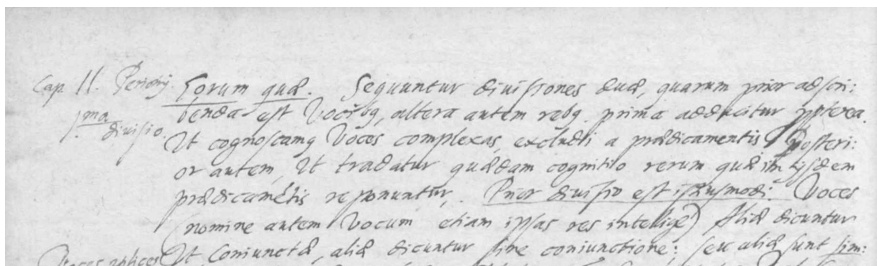 Cap. II. Periodi
1ma divisio.
Eorum quæ. Sequuntur divisiones duæ, quarum prior adscri:
benda est Vocibq, altera autem rebq. prima adducitur pptereà
Ut cognoscamq Voces complexas, excludi à prædicamentis. Posteri:
or autem, Ut tradatur quædam cognitio rerum quæ in ijsdem
prædicamẽtis reponuntur. Prior divisio est istiusmodi. Voces
(nomine autem Vocum etiam ipsas res intellige) Aliæ dicuntur
Ut Coniunctæ, aliæ dicuntur sine coniunctione; seu aliæ sunt sim: